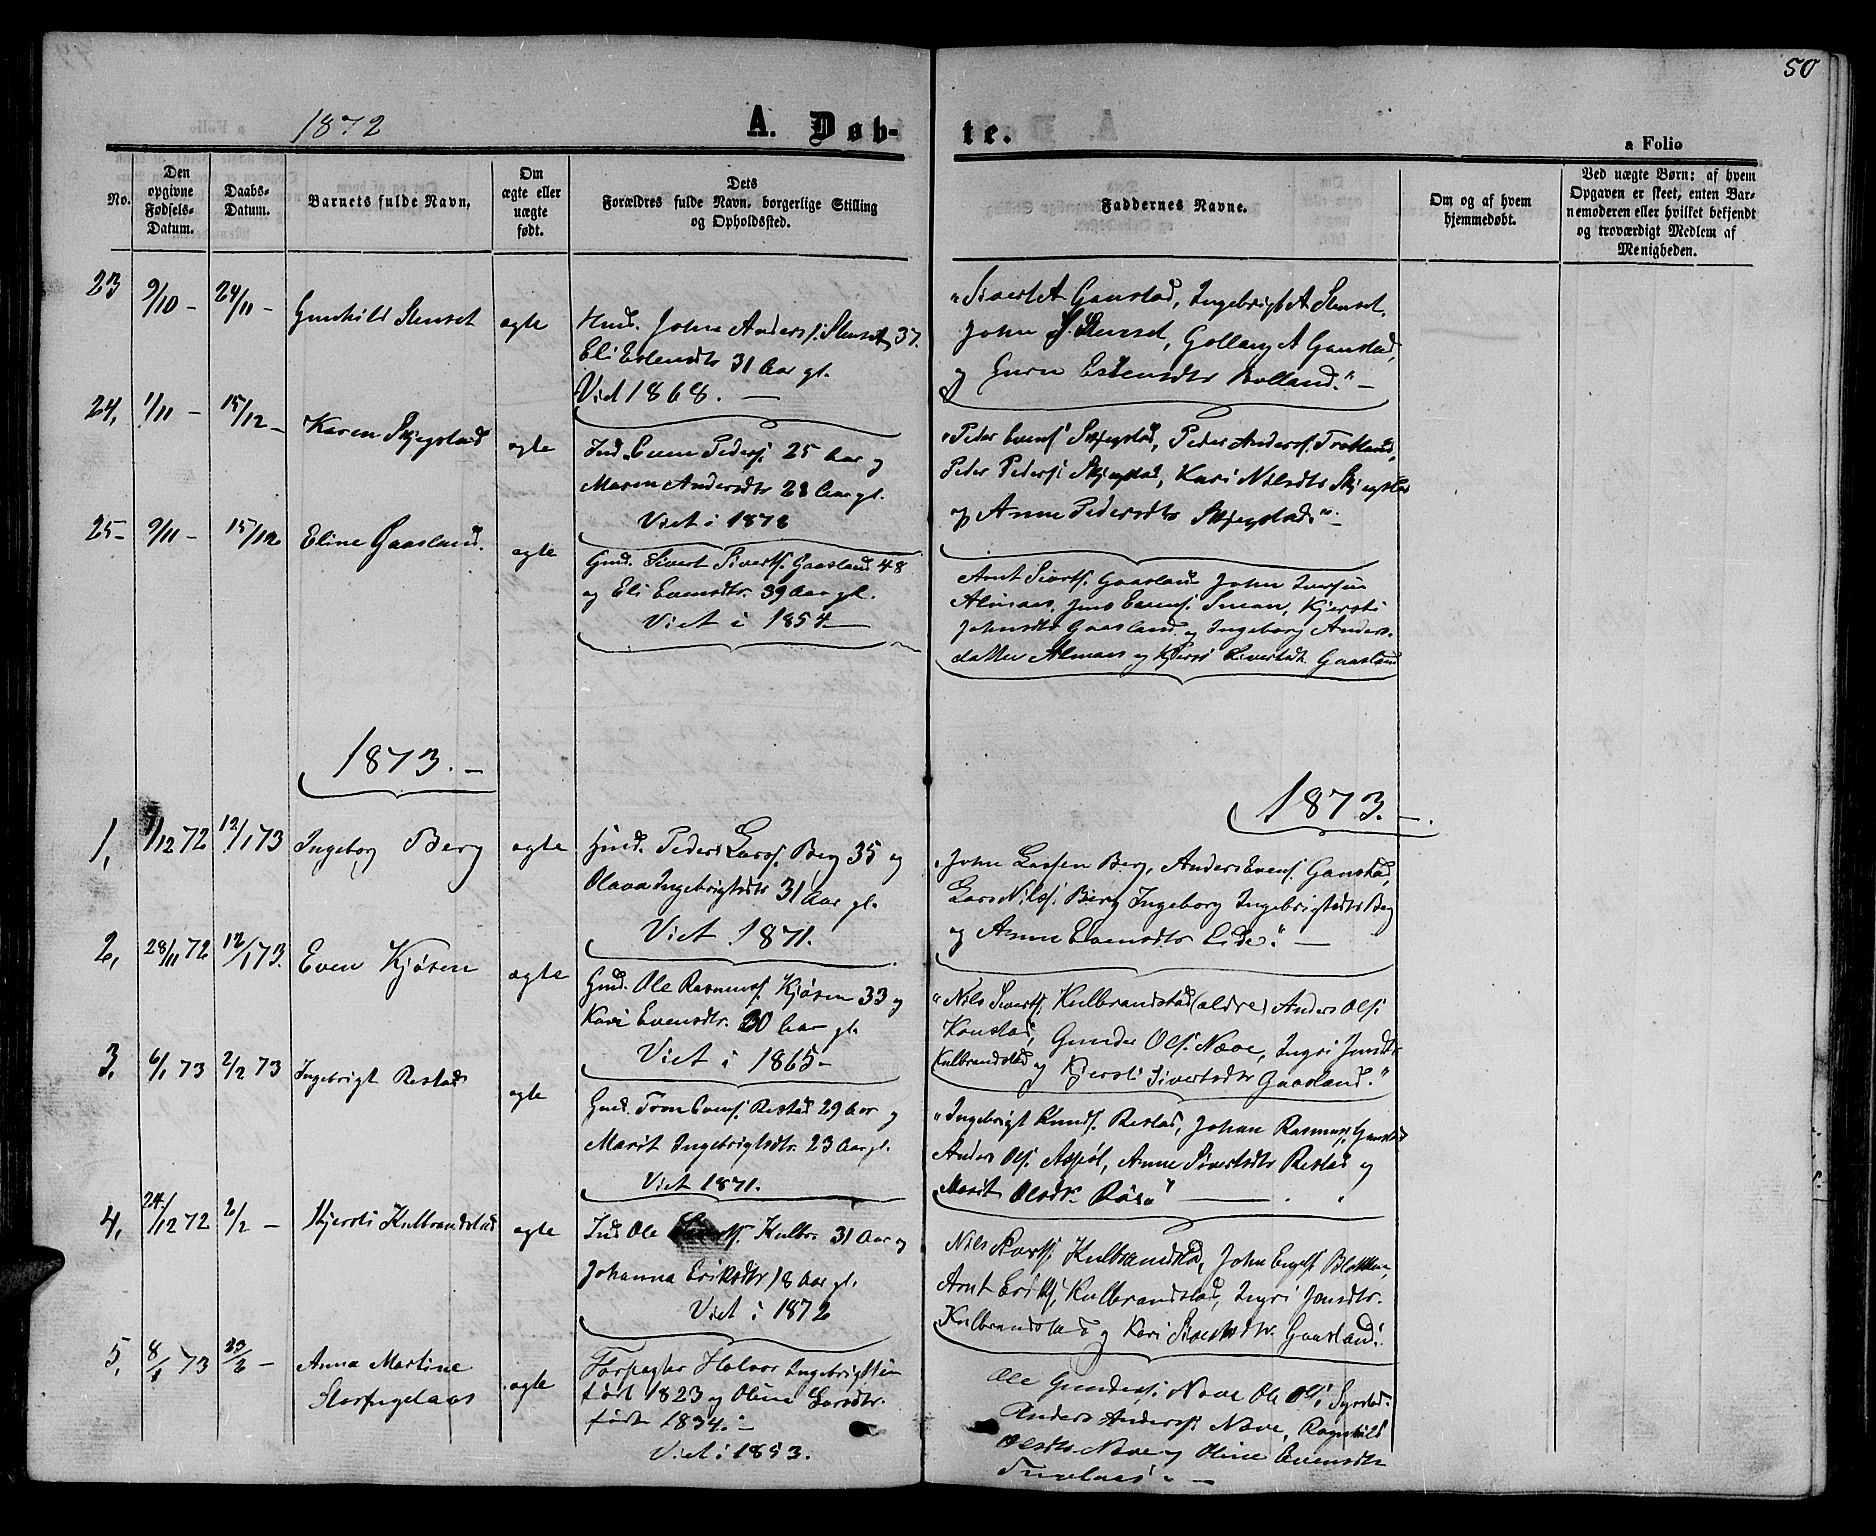 50
1872
A. Døb-
te.
a Folio
No.
Den
opgivne
Fødsels-
Datum.
Daabs-
Datum.
Barnets fulde Navn.
Om
ægte eller
uægte
født.
Dets
Forældres fulde Navn, borgerlige Stilling
og Opholdssted.
Faddernes Navne.
Om og af hvem
hjemmedøbt.
Ved uægte Børn: af hvem
Opgaven er skeet, enten Bar-
nemoderen eller hvilket bekjendt
og troværdigt Medlem af
Menigheden.
23
9/10 -
24/11 -
Gunhild Stenset
ægte
John Anders. Stenset, 37.
Eli Estensdtr 31 Aar gl.
Viet 1868. -
"Sivert A Ganstad, Ingebrigt A Stenset,
John S. Stenset, Gollaug A Ganstad,
og Guru Estensdtr Volland." -
24,
1/11 -
15/12 -
Karen Skjegstad
ægte
Ind. Even Peders. 25 Aar og
Maren Andersdtr 28 Aar gl.
Viet i 1872
"Peder Evens. Skjegstad, Peder Anders.
Peder Peders. Skjegstad, Kari Nilsdtr Skjegstad
og Anne Pedersdtr Skjegstad." -
25 -
9/11 -
15/12
Eline Gaasland.
ægte
Gmd. Sivert Siverts. Gaasland 48
og Eli Evensdtr. 39 Aar gl.
Viet i 1854. -
Arnt Siverts. Gaasland John Iversen
Almaas, Jens Evens. Kjersti
Johnsdtr Gaasland og Ingeborg Anders-
datter Almaas og Sivertsdt. Gaasland
1873. -
1873. -
1,
1/12 72
12/1 73
Ingeborg Berg
ægte
Gmd. Peder Larss. Berg 35 og
Olava Ingebrigtsdtr 31 Aar gl.
Viet 1871.
John Larsen Berg, Anders Evens. Ganstad,
Lars Nils. Berg Ingeborg Ingebrigtsdtr Berg
og Anne Evensdtr Eide." -
2,
28/11 72
12/1 73.
Even Kjøsen
ægte
Gmd. Ole Rasmuss. Kjøsen 33 og
Kari Evensdtr. 30 Aar gl.
Viet i 1865 -
"Nils Siverts. Kulbrandstad (ældre) Anders Ols.
Gunder Ols. Næve, Ingri Jonsdtr
Kulbrandstad og Kjersti Sivertsdtr Gaasland."
3,
6/1 73
2/2 73
Ingebrigt Restad
ægte
Gmd. Tron Evens. Restad 29 Aar og
Marit Ingebrigtsdtr. 23 Aar gl.
Viet 1871.
"Ingebrigt Knuds. Restad, Johan Rasmus. Ganstad
Anders Ols. Anne Sivertsdtr Restad og
Marit Olsdtr. Røs." -
4,
24/12 72
2/2 -
Kjersti Kulbrandstad
ægte
Ind Ole Kulbr. 31 Aar og
Johanna Eriksdtr 18 Aar gl.
Viet i 1872
Nils Siverts. Kulbrandstad, John
Arnt Eriks. Kulbrandstad, Ingri Jonsdtr.
Kulbrandstad og Kari Sivertsdtr. Gaasland.
5,
8/1 73
23/2 -
Anna Martine
ægte
Forpagter Halvor Ingebrigtsen
født 1823 og Oline Larsdtr.
født 1834. -
Viet i 1853.
Ole Gunders. Næve Ole Ols.
Anders Anders. Næve, Ragnhild
Olsdtr Næve og Oline Evensdtr